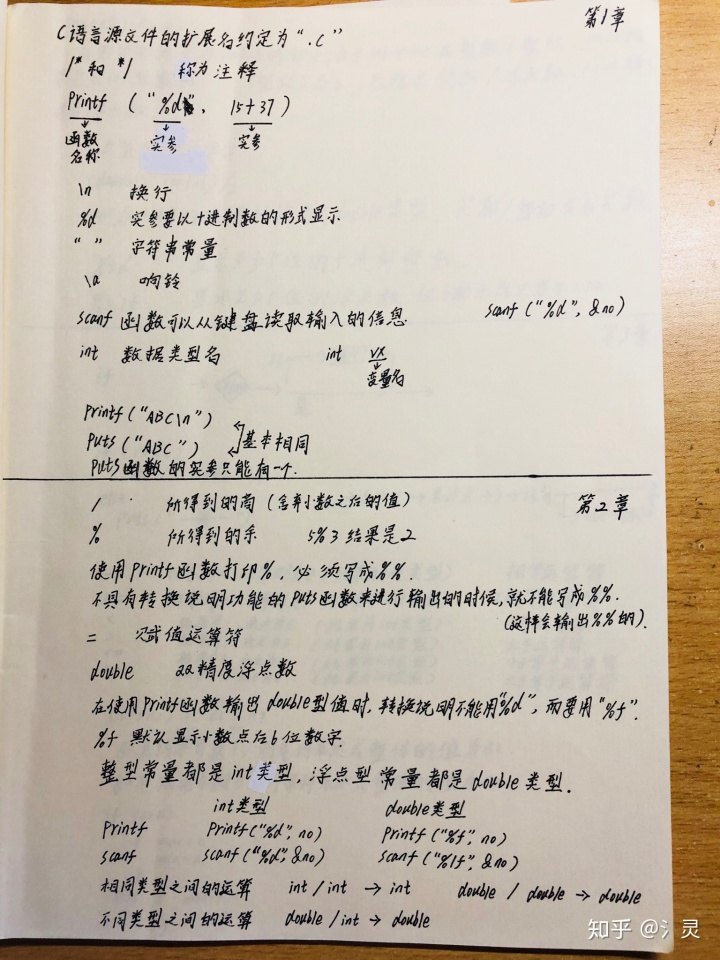 第1章
C语言源文件的扩展名约定为“.C”
/* 和 */ 称为注释
printf (“%d”, 15+37)
函数名称 实参 实参
\n 换行
%d 实参要以十进制数的形式显示
“ ” 字符串常量
\a 响铃
scanf 函数可以从键盘读取输入的信息 scanf (“%d”, &no)
int 数据类型名 int vx
变量名
printf (“ABC\n”)
puts (“ABC”) 基本相同
puts函数的实参只能有一个.
/ 所得到的商 (舍弃小数之后的值) 第2章
% 所得到的余 5%3结果是2
使用printf函数打印%, 必须写成%%.
不具有转换说明功能的puts函数来进行输出的时候, 就不能写成%%.
(这样会输出%%的).
= 赋值运算符
double 双精度浮点数
在使用printf函数输出double型值时, 转换说明不能用“%d”, 而要用“%f”.
%f 默认显示小数点后6位数字.
整型常量都是int类型, 浮点型常量都是double类型.
int类型 double类型
printf printf(“%d”, no) printf(“%f”, no)
scanf scanf(“%d”, &no) scanf(“%lf”, &no)
相同类型之间的运算 int / int → int double / double → double
不同类型之间的运算 double / int → double
知乎 @氵灵